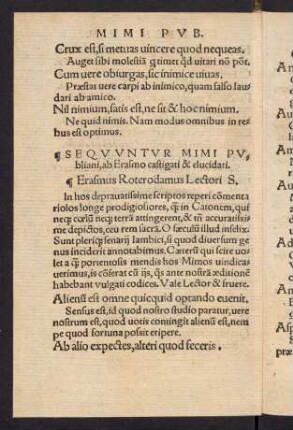 MIMI PVB.
Crux est, si metuas uincere quod nequeas.
Auget sibi molestiā q timet qđ uitari nō pōt.
Cum uere obiurgas, sic inimice uiuas.
Præstas uere carpi ab inimico, quam falso lau
dari ab amico.
Nil nimium, satis est, ne sit & hoc nimium.
Ne quid nimis. Nam modus omnibus in re
bus est optimus.
¶ SEQVVNTVR MIMI PV,
bliani, ab Erasmo castigati & elucidati.
¶ Erasmus Roterodamus Lectori S.
In hos deprauatissime scriptos reperi cōmenta
riolos longe prodigiosiores, q̄ in Catonem, qui
neq; cœlū neq; terrā attingerent, & tñ accuratissi
me depictos, ceu rem sacrā. O sæculū illud infelix.
Sunt pleriq; senarij Iambici, si quod diuersum ge
nus inciderit annotabimus. Cæterū qui scire uo
let a q̄ portentosis mendis hos Mimos uindicas
uerimus, is cōferat cū ijs, q̄s ante nostrā æditionē
habebant vulgati codices. Vale Lector & fruere.
Alienū est omne quicquid optando euenit.
Sensus est, id quod nostro studio paratur, uere
nostrum est, quod uotis contingit alienū est, nem
pe quod fortuna possit eripere.
Ab alio expectes, alteri quod feceris.